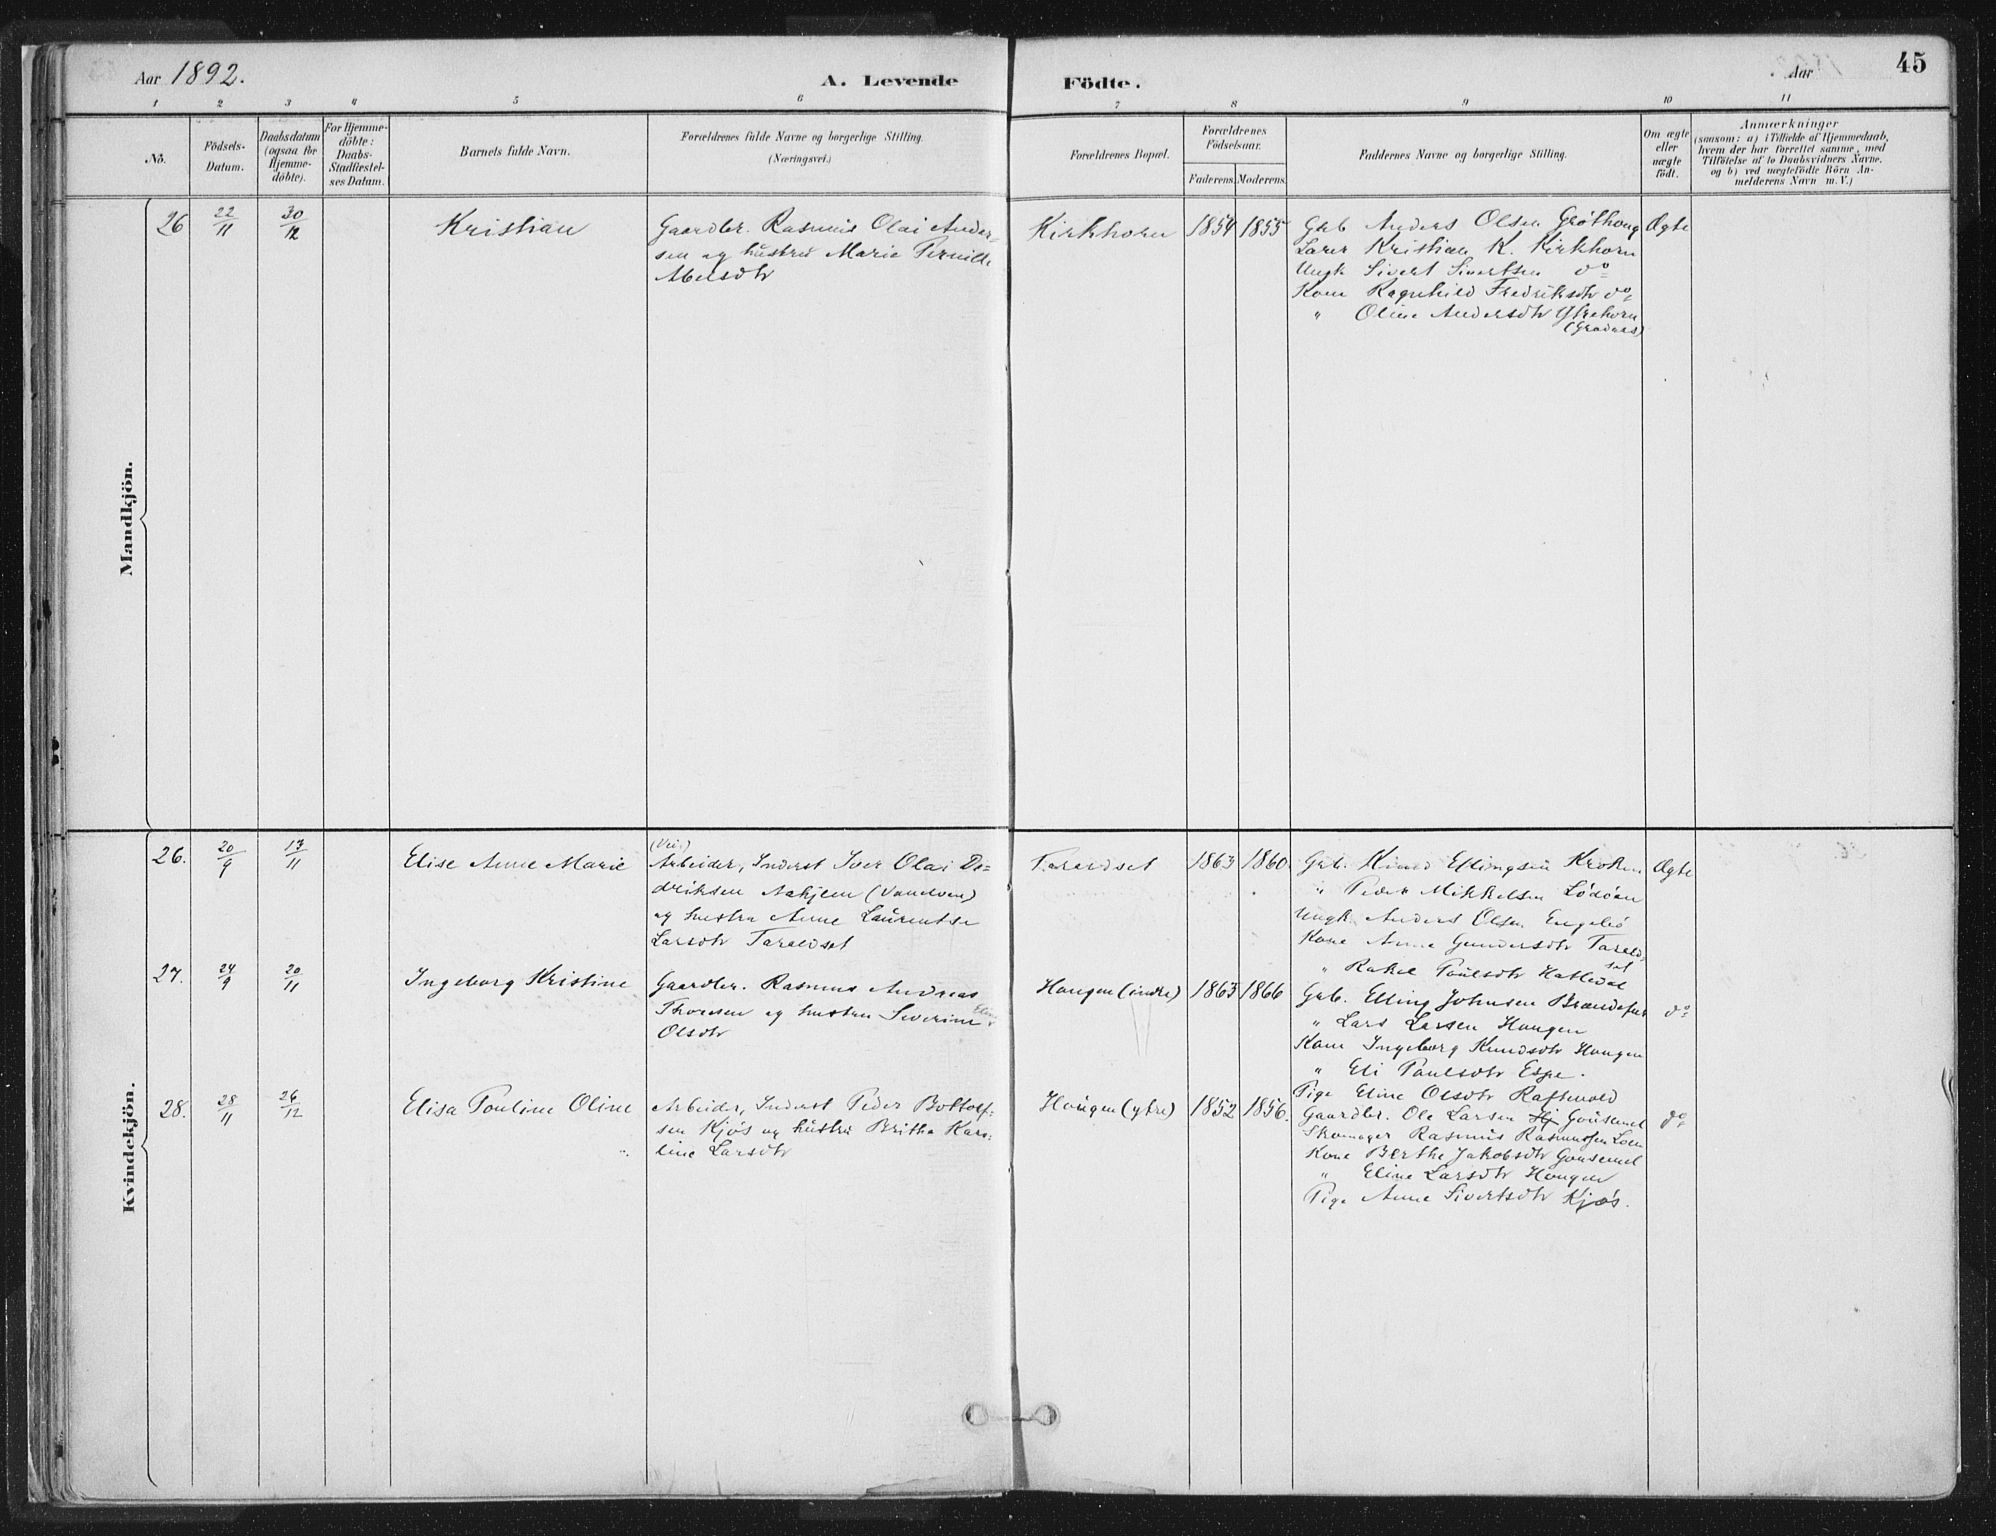 Aar 1892.
A. Levende
Födte.
Aar
45
1 2 3 4 5 6 7 8 9 10 11
No.
Födsels-
Datum.
Daabsdatum
(ogsaa for
Hjemme-
döbte).
For Hjemme-
döbte:
Daabs-
Stadfæstel-
ses Datum.
Barnets fulde Navn.
Forældrenes fulde Navne og borgerlige Stilling.
(Næringsvei.)
Forældrenes Bopæl.
Forældrenes
Födselsaar.
Faderens. Moderens.
Faddernes Navne og borgerlige Stilling.
Om ægte
eller
uægte
födt.
Anmærkninger
(saasom: a) i Tilfælde af Hjemmedaab,
hvem der har forrettet samme, med
Tilföielse af to Daabsvidners Navne.
og b) ved uægtefödte Börn An-
melderens Navn m. V.)
Mandkjön.
26
22/11
30/12
Kristian
Gaardbr. Rasmus Olai Ander-
sen og hustru Marie Pernille
Abelsdtr
Kirkhorn
1854
1855
Grb Anders Olsen Gröthoug
Lærer Kristian K. Kirkhorn
Ungk Sivert Sivertsen do
Kone Ragnhild Fredriksdtr do
" Oline Andersdtr Ytrehorn
Ægte
Kvindekjön.
26.
20/9
13/11
Elise Anne Marie
(Vei)
Arbeider, Inderst Iver Olai Di=
driksen Aahjem (Vanelven)
og hustru Anne Laurentse
Larsdtr Taraldset
Taraldset
1863
1860
Grb. Knud Ellingsen Kroken
" Peder Mikkelsen Lödöen
Ungk Anders Olsen Engelió
Kone Anne Gundersdtr Tarald,
set
" Rakel Paulsdtr Hatledal
Ægte
27.
24/9
20/11
Ingeborg Kristine
Gaardbr. Rasmus Andreas
Thoresen og hustru Severine Eline
Olsdtr
Haugen (indre)
1863
1866
Grb. Elling Johnsen
" Lars Larsen Haugen
Kone Ingeborg Knudsdtr Haugen
" Eli Paulsdtr Espe.
Pige Eline Olsdtr Raftevold
do
28.
28/11
26/12
Elisa Pouline Oline
Arbeider, Inderst Peder Bottolf-
sen Kjös og hustru Britha Karo-
line Larsdtr
Haugen (ytre)
1852
1856.
Gaardbr. Ole Larsen Hj Gausemel
Skomager Rasmus Rasmussen Loen
Kone Berthe Jakobsdtr Gausemel
" Eline Larsdtr Haugen
Pige Anne Sivertsdtr Kjös.
do